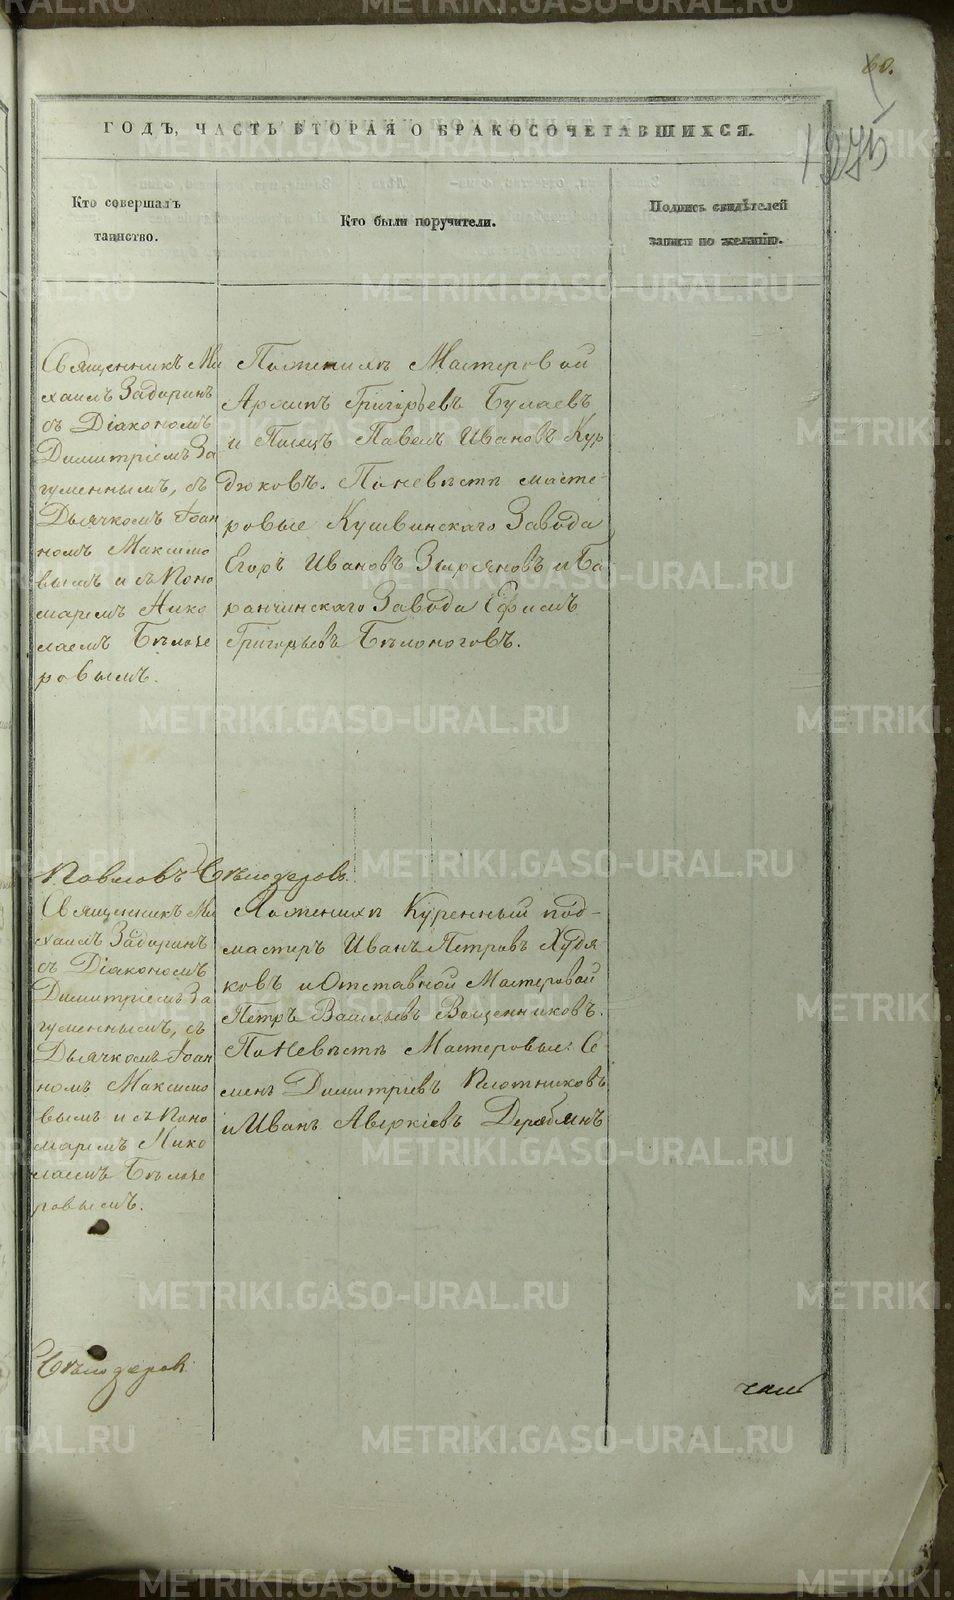 60.
1275
ГОДЪ, ЧАСТЬ ВТОРАЯ О БРАКОСОЧЕТАВШИХСЯ.
Кто совершалъ
таинство.
Кто были поручители.
Подпись свидѣтелей
записи по желанію.
Священникъ Ми
хаилъ Задоринъ
съ Діакономъ
Димитріемъ За
гуменнымъ, съ
Дьячкомъ Іоан
номъ Максимо
вымъ и съ Поно
маремъ Нико
лаемъ Бѣлозе
ровымъ.
По женихѣ Мастеровой
Архипъ Григорьевъ Булаевъ
и Писецъ Павелъ Ивановъ Кур
дюковъ. По невѣстѣ масте-
ровые Кушвинскаго Завода
Егоръ Ивановъ Зыряновъ и Ба
ранчинскаго Завода Ефимъ
Григорьевъ Бѣлоноговъ.
Павловъ Бѣлозеровъ
Священникъ Ми
хаилъ Задоринъ
съ Діакономъ
Димитріемъ За
гуменнымъ, съ
Дьячкомъ Іоан
номъ Максимо
вымъ и съ Поно
маремъ Нико
лаемъ Бѣлозе
ровымъ.
По женихѣ Куренный под-
мастеръ Иванъ Петровъ Худя
ковъ и Отставной Мастеровой
Петръ Васильевъ Вощенниковъ.
По Невѣстѣ Мастеровые: Се
менъ Димитріевъ Плотниковъ
и Иванъ Аверкіевъ Дерябинъ
Бѣлозеров
METRIKI.GASO-URAL.RU